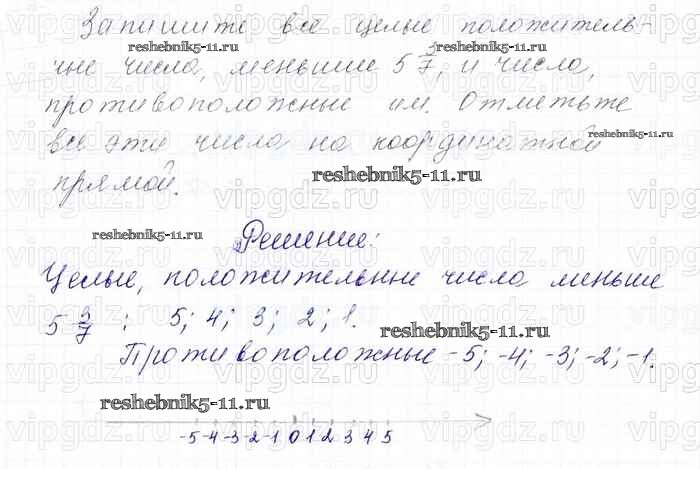 Запишите все целые положитель-
reshebnik5-11.ru
ные числа, меньшие 5 3/7, и числа,
противоположные им. Отметьте
reshebnik5-11.ru
все эти числа на координатной
прямой.
reshebnik5-11.ru
reshebnik5-11.ru
Решение:
Целые, положительные числа меньше
5 3/7 : 5; 4; 3; 2; 1.
reshebnik5-11.ru
Противоположные -5; -4; -3; -2; -1.
reshebnik5-11.ru
-5 -4 -3 -2 -1 0 1 2 3 4 5